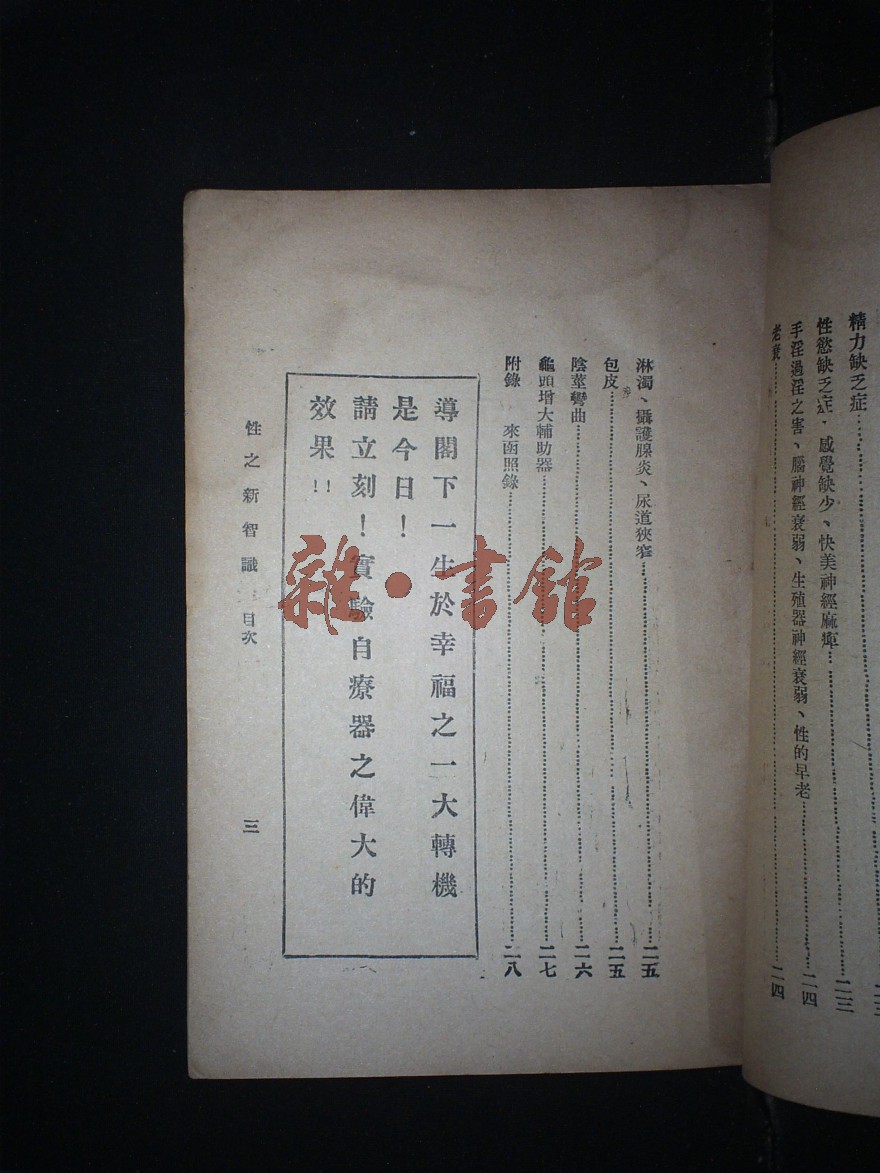 精力缺乏症
性慾缺乏症、感覺缺少、快美神經麻痺 二三
手淫過淫之害、腦神經衰弱、生殖器神經衰弱、性的早老 二四
老衰 二四
淋濁、攝護腺炎、尿道狹窄 二五
包皮 二五
陰莖彎曲 二六
龜頭增大輔助器 二七
附錄 來函照錄 二八
導閣下一生於幸福之一大轉機
是今日！
請立刻！實驗自療器之偉大的
效果!!
性之新智識 目次 三
雜·書館